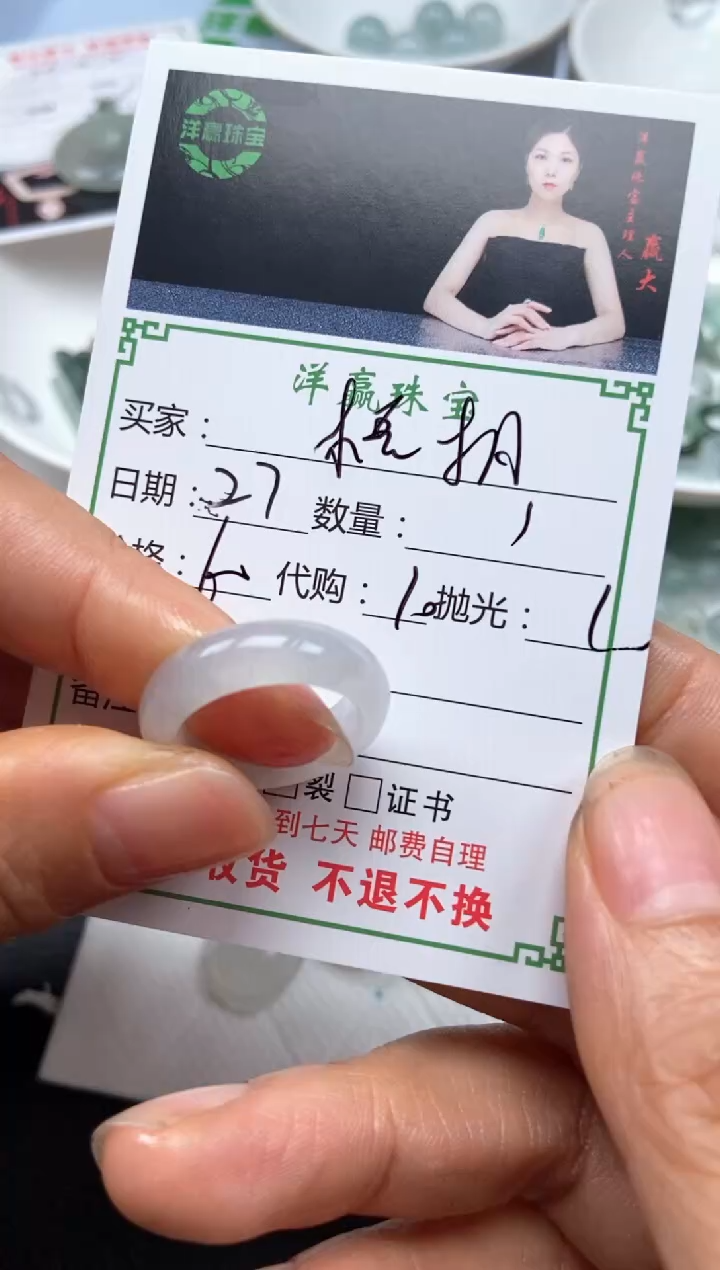 洋赢珠宝
洋赢珠宝主理人 赢大
洋赢珠宝
买家：
日期：27 数量：1
格： 代购： 抛光：
备注
裂 □证书
到七天 邮费自理
收货 不退不换